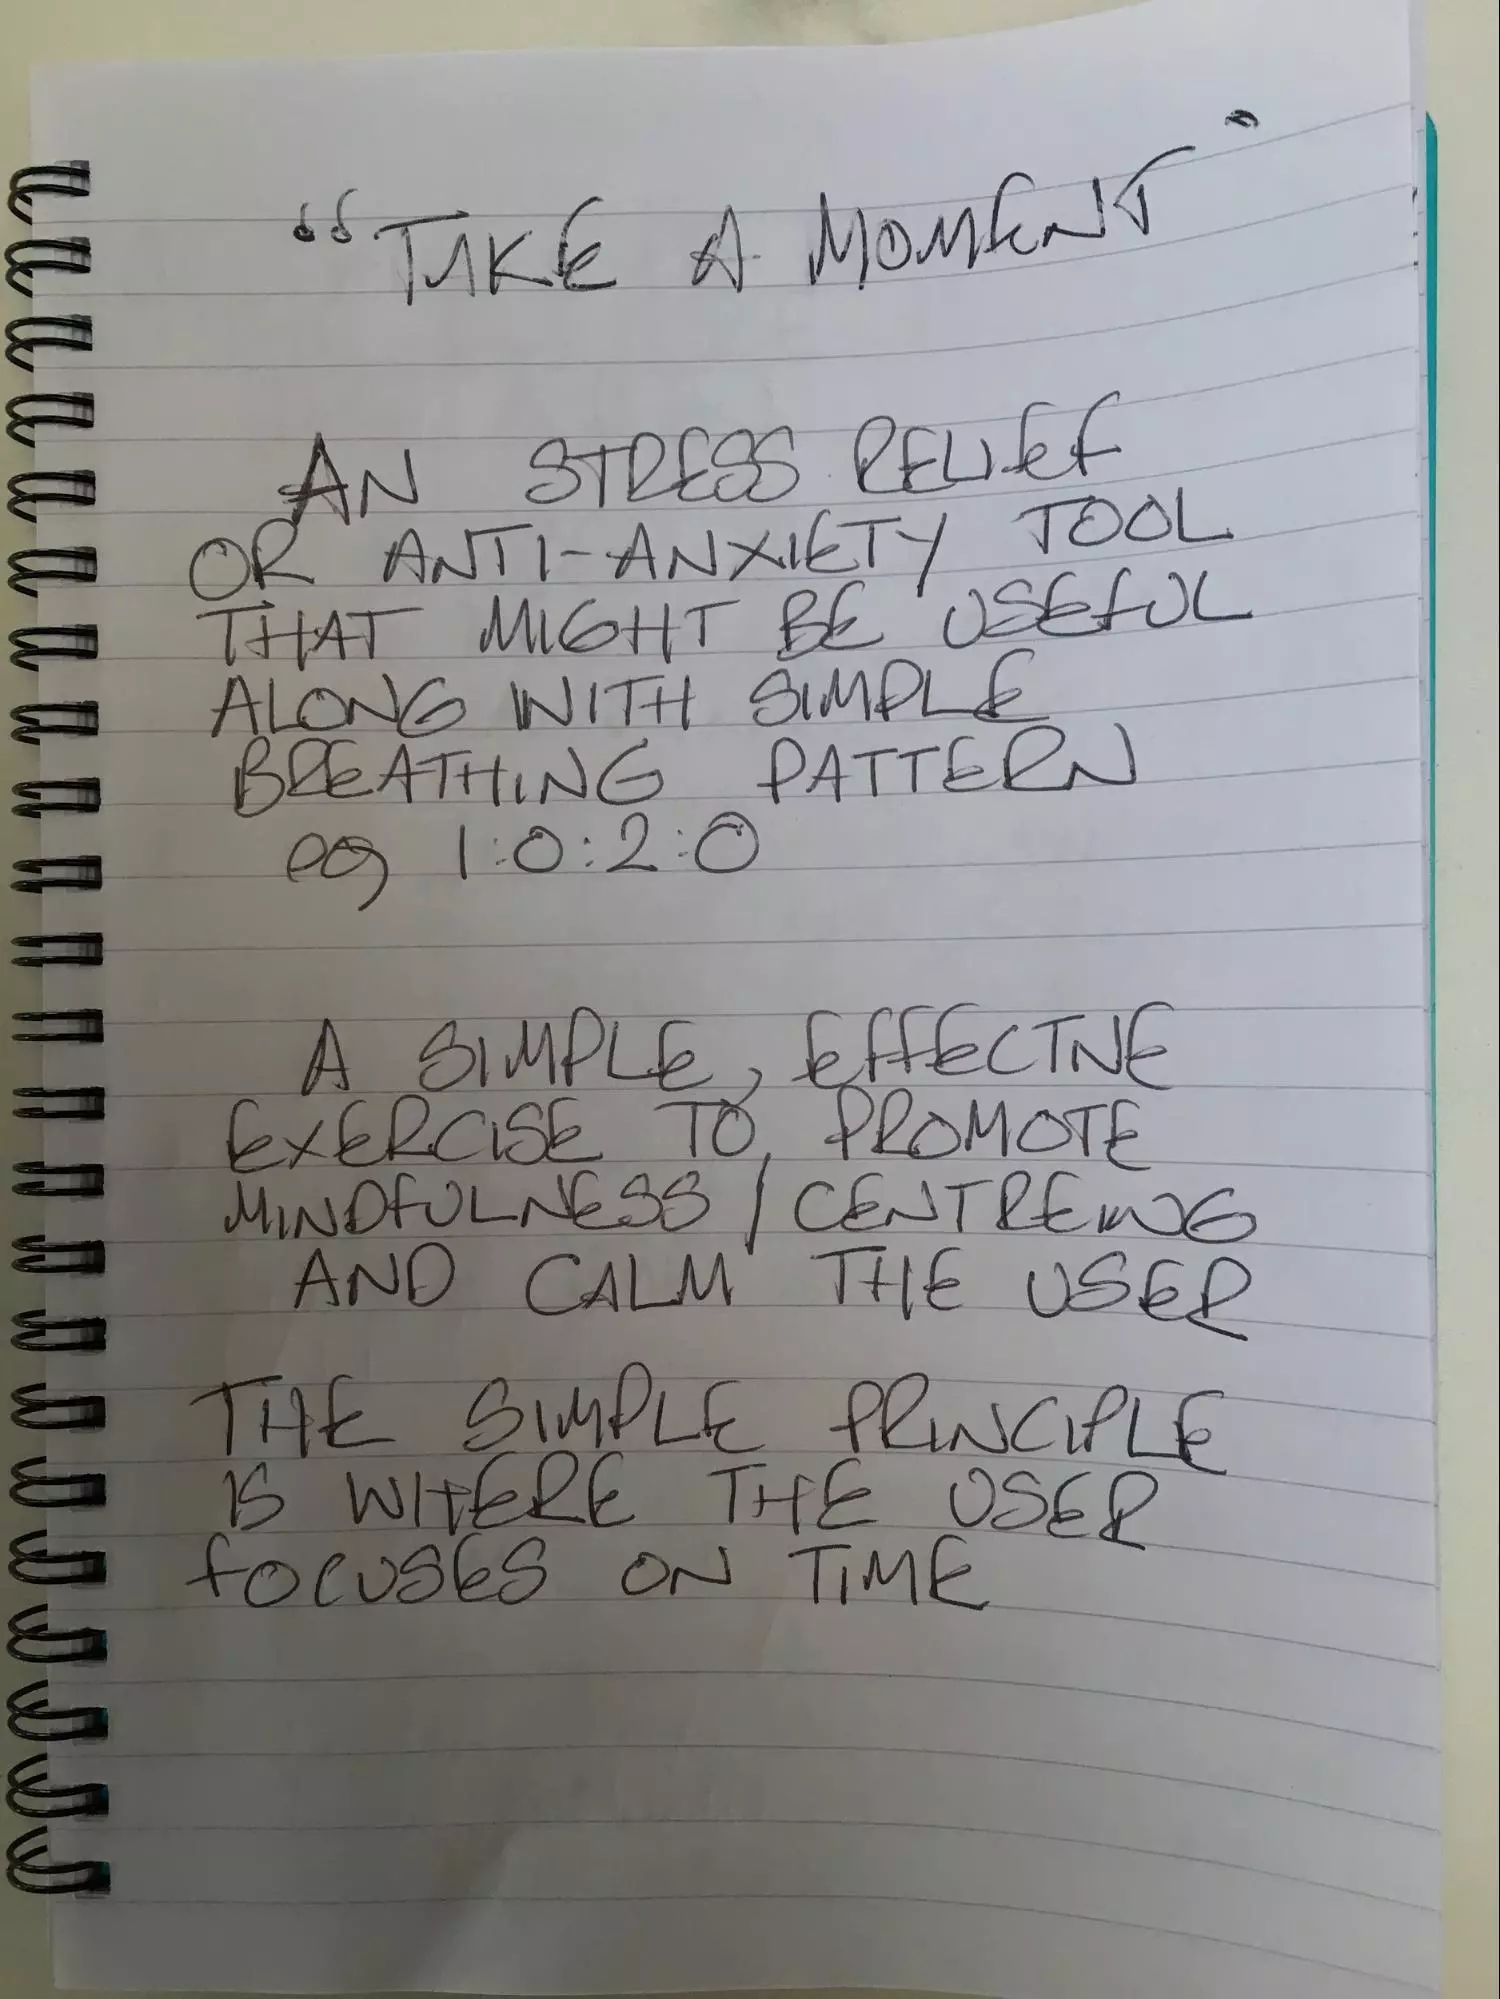 "TAKE A MOMENT"
AN STRESS RELIEF
OR ANTI-ANXIETY TOOL
THAT MIGHT BE USEFUL
ALONG WITH SIMPLE
BREATHING PATTERN
eg 1:0:2:0
A SIMPLE, EFFECTIVE
EXERCISE TO PROMOTE
MINDFULNESS / CENTREING
AND CALM THE USER
THE SIMPLE PRINCIPLE
IS WHERE THE USER
FOCUSES ON TIME